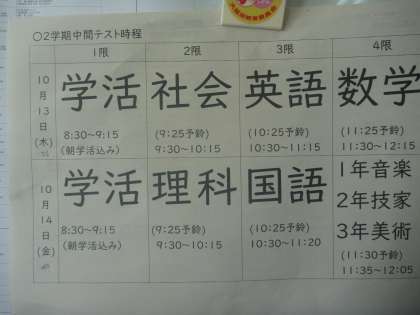 ○2学期中間テスト時程
1限 2限 3限 4限
10月13日(木) 学活 社会 英語 数学
8:30～9:15 (9:25予鈴) (10:25予鈴) (11:25予鈴)
(朝学活込み) 9:30～10:15 10:30～11:15 11:30～12:15
10月14日(金) 学活 理科 国語 1年音楽
2年技家
3年美術
8:30～9:15 (9:25予鈴) (10:25予鈴) (11:30予鈴)
(朝学活込み) 9:30～10:15 10:30～11:20 11:35～12:05